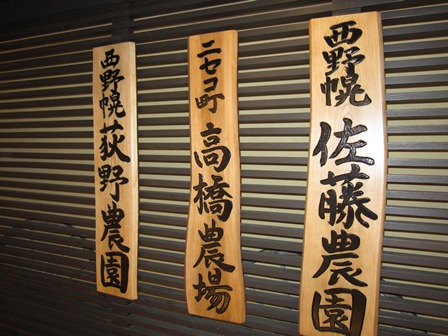 西野幌佐藤農園
ニセコ町高橋農場
西野幌荻野農園